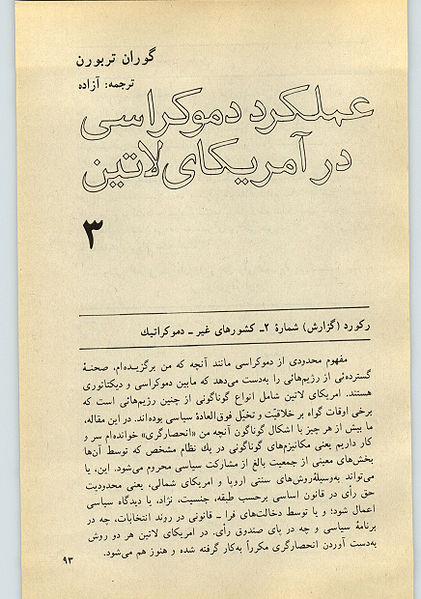 گوران تربورن
ترجمه: آزاده
عملکرد دموکراسی
در آمریکای لاتین
۳
رکورد (گزارش) شمارهٔ ۲ـ کشورهای غیر ـ دموکراتیك
مفهوم محدودی از دموکراسی مانند آنچه که من برگزیده‌ام، صحنهٔ
گسترده‌ئی از رژیم‌هائی را به‌دست می‌دهد که مابین دموکراسی و دیکتاتوری
هستند. امریکای لاتین شامل انواع گوناگونی از چنین رژیم‌هائی است که
برخی اوقات گواه بر خلاقیّت و تخیّل فوق‌العادهٔ سیاسی بوده‌اند. در این مقاله،
ما بیش از هر چیز با اشکال گوناگون آنچه من «انحصارگری» خوانده‌ام سر و
کار داریم یعنی مکانیزم‌های گوناگونی در یك نظام مشخص که توسط آن‌ها
بخش‌های معینی از جمعیت بالغ از مشارکت سیاسی محروم می‌شود. این، یا
می‌تواند به‌وسیلهٔ‌روش‌های سنتی اروپا و امریکای شمالی، یعنی محدودیت
حق رأی در قانون اساسی برحسب طبقه، جنسیت، نژاد، یا دیدگاه سیاسی
اعمال شود؛ و یا توسط دخالت‌های فرا ـ قانونی در روند انتخابات، چه در
برنامهٔ سیاسی و چه در پای صندوق رأی. در امریکای لاتین هر دو روش
به‌دست آوردن انحصارگری مکرراً به‌کار گرفته شده و هنوز هم می‌شود.
۹۳